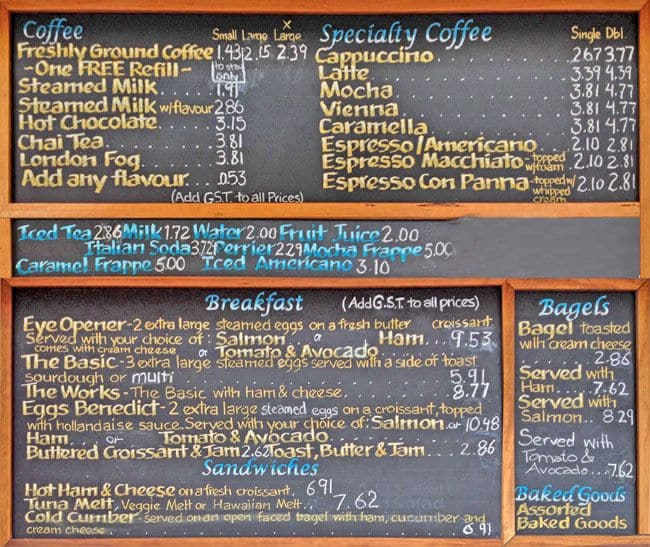 Coffee
Small Large x Large
Freshly Ground Coffee 1.43 2.15 2.39
~One FREE Refill~ to stay only
Steamed Milk ..... 1.91
Steamed Milk w/flavour 2.86
Hot Chocolate ..... 3.15
Chai Tea ..... 3.81
London Fog ..... 3.81
Add any flavour .. .053
(Add G.S.T. to all Prices)
Specialty Coffee
Single Dbl.
Cappuccino 2.67 3.77
Latte 3.39 4.39
Mocha 3.81 4.77
Vienna 3.81 4.77
Caramella 3.81 4.77
Espresso/Americano 2.10 2.81
Espresso Macchiato-topped w/foam 2.10 2.81
Espresso Con Panna-topped w/ whipped cream 2.10 2.81
Iced Tea 2.86 Milk 1.72 Water 2.00 Fruit Juice 2.00
Italian Soda 3.72 Perrier 2.29 Mocha Frappe 5.00
Caramel Frappe 5.00 Iced Americano 3.10
Breakfast (Add G.S.T. to all prices)
Eye Opener-2 extra large steamed eggs on a fresh butter croissant.
Served with your choice of: Salmon or Ham... 9.53
comes with cream cheese or Tomato & Avocado
The Basic-3 extra large steamed eggs served with a side of toast
sourdough or multi 5.91
The Works-The Basic with ham & cheese. 8.77
Eggs Benedict-2 extra large steamed eggs on a croissant, topped
with hollandaise sauce. Served with your choice of: Salmon or 10.48
Ham or Tomato & Avocado
Buttered Croissant & Jam 2.62 Toast, Butter & Jam... 2.86
Sandwiches
Hot Ham & Cheese on a fresh croissant. 6.91
Tuna Melt, Veggie Melt or Hawaiian Melt.. 7.62
Cold Cumber-served on an open faced bagel with ham, cucumber and
cream cheese 6.91
Bagels
Bagel toasted
with cream cheese
2.86
Served with
Ham.... 7.62
Served with
Salmon.. 8.29
Served with
Tomato &
Avocado... 7.62
Baked Goods
Assorted
Baked Goods